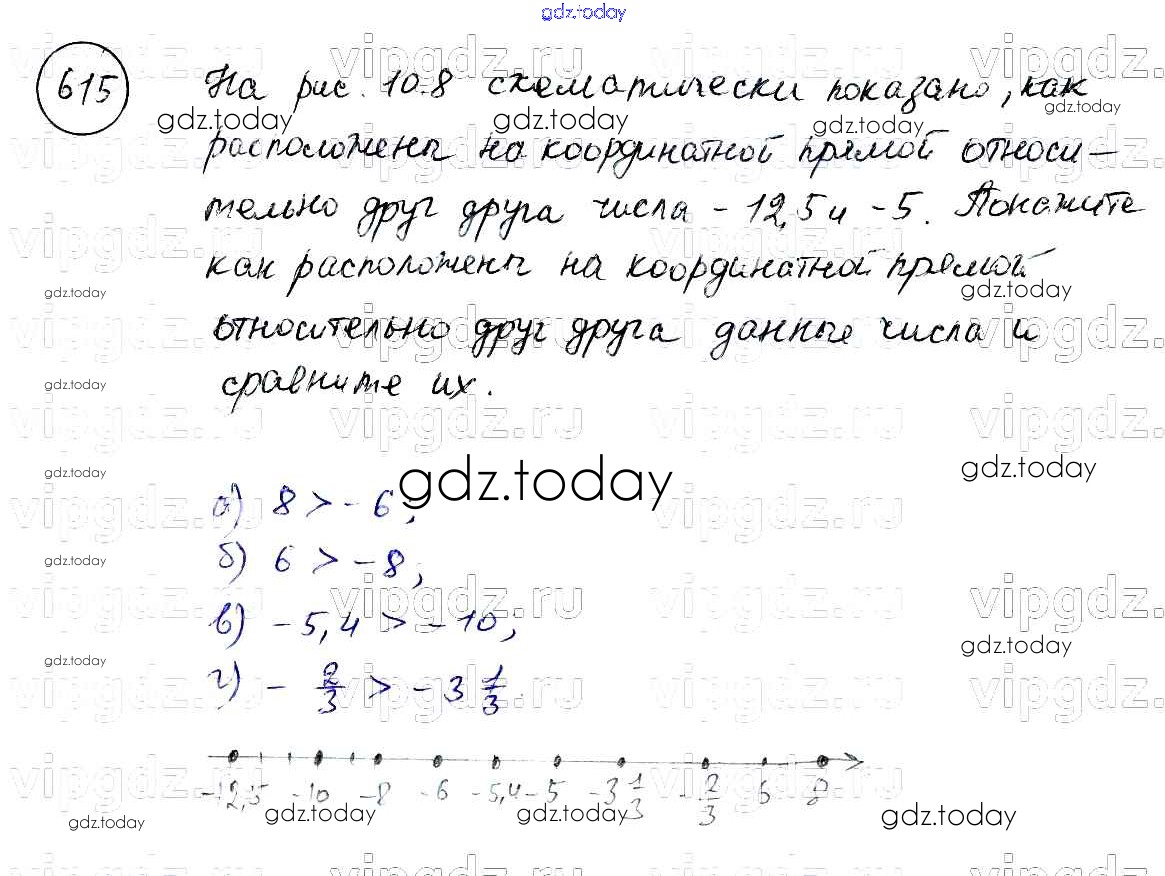 gdz.today
615 На рис. 10.8 схематически показано, как
расположены на координатной прямой относи-
тельно друг друга числа -12,5 и -5. Покажите
как расположены на координатной прямой
относительно друг друга данные числа и
сравните их.
gdz.today
а) 8 > -6;
б) 6 > -8;
в) -5,4 > -10,
г) - 2/3 > -3 1/3.
-12,5 -10 -8 -6 -5,4 -5 -3 1/3 - 2/3 6 8
gdz.today gdz.today gdz.today
vipgdz.ru